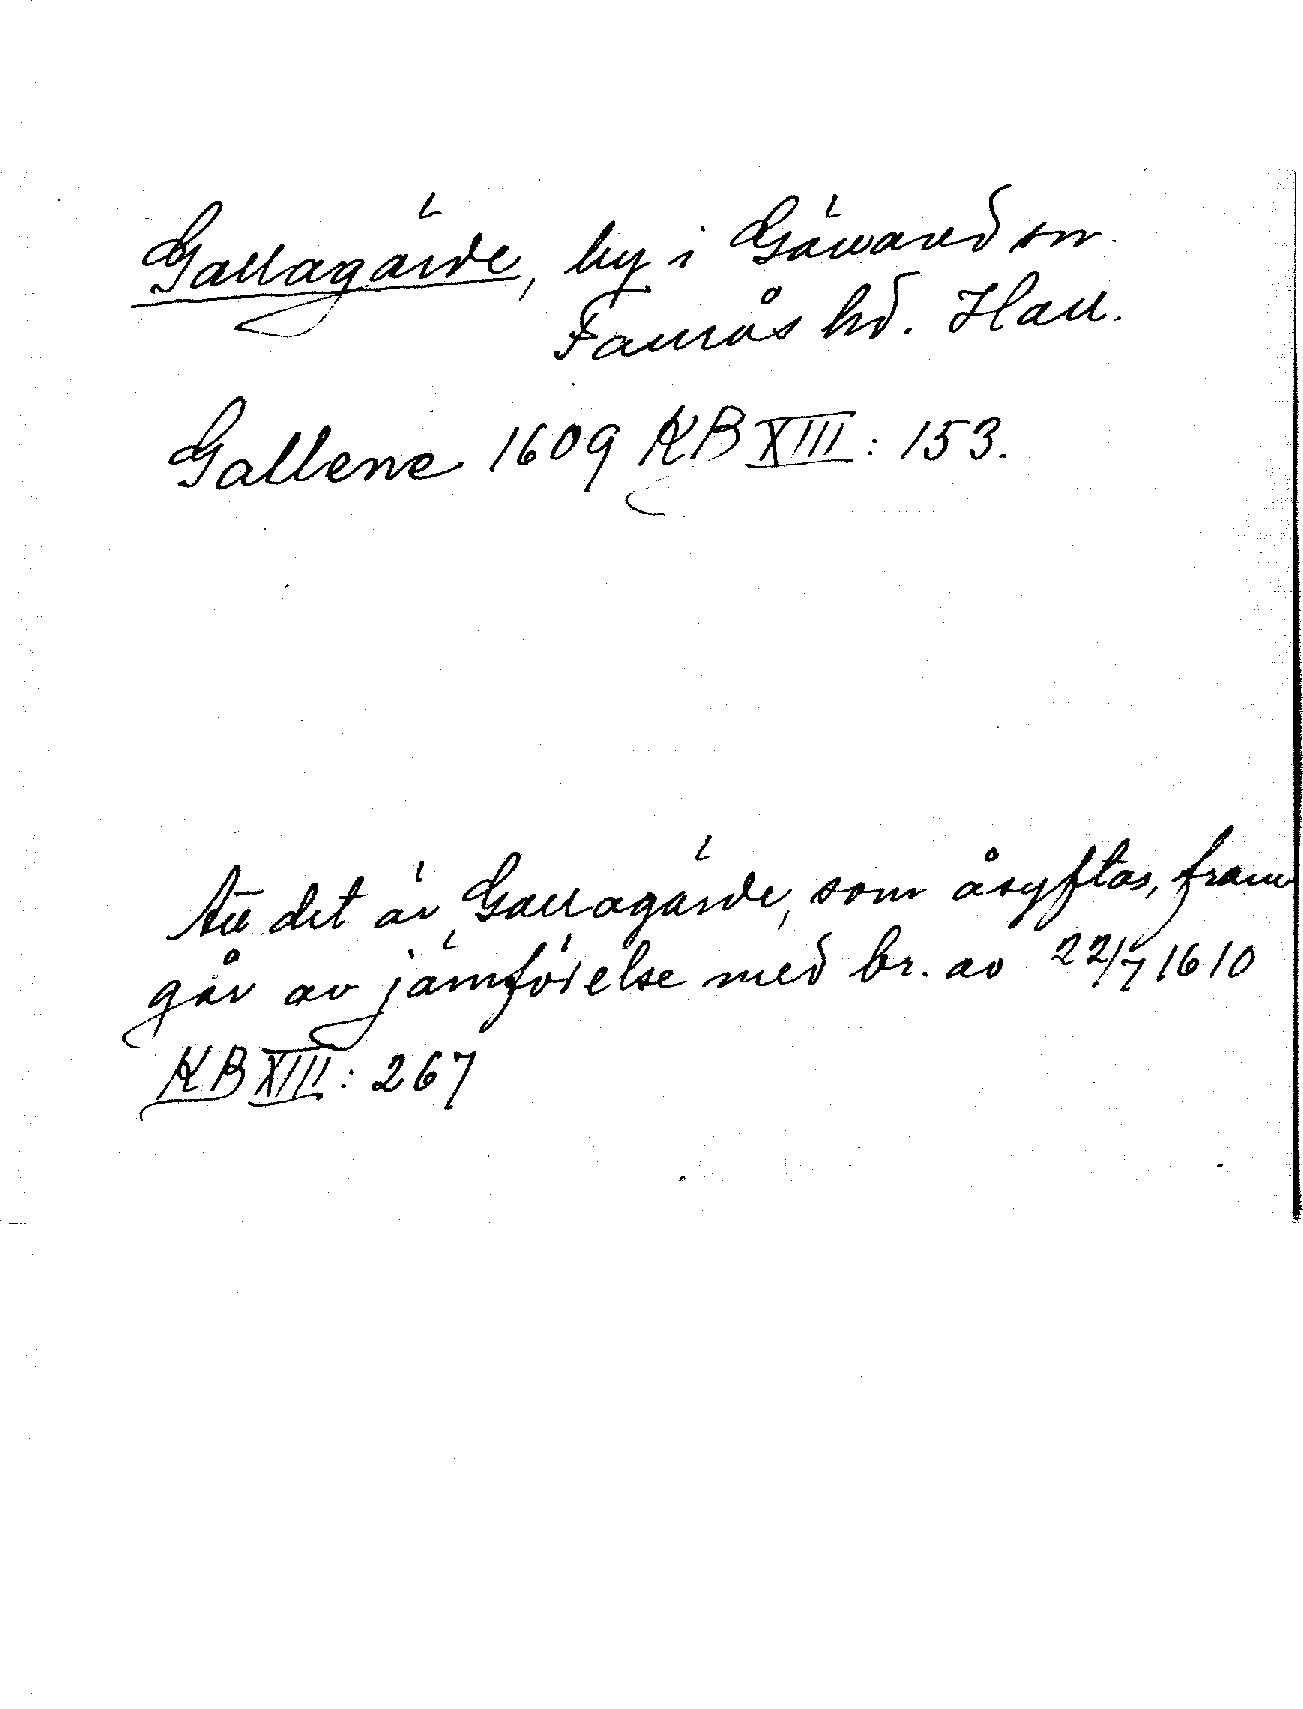 Gällagärde, by i Gäward sn
Faurås hd. Hall.
Gallene 1609 KB XIII: 153.
Att det är Gällagärde, som åsyftas, fram
går av jämförelse med br. av 22/7 1610
KB XIII: 267